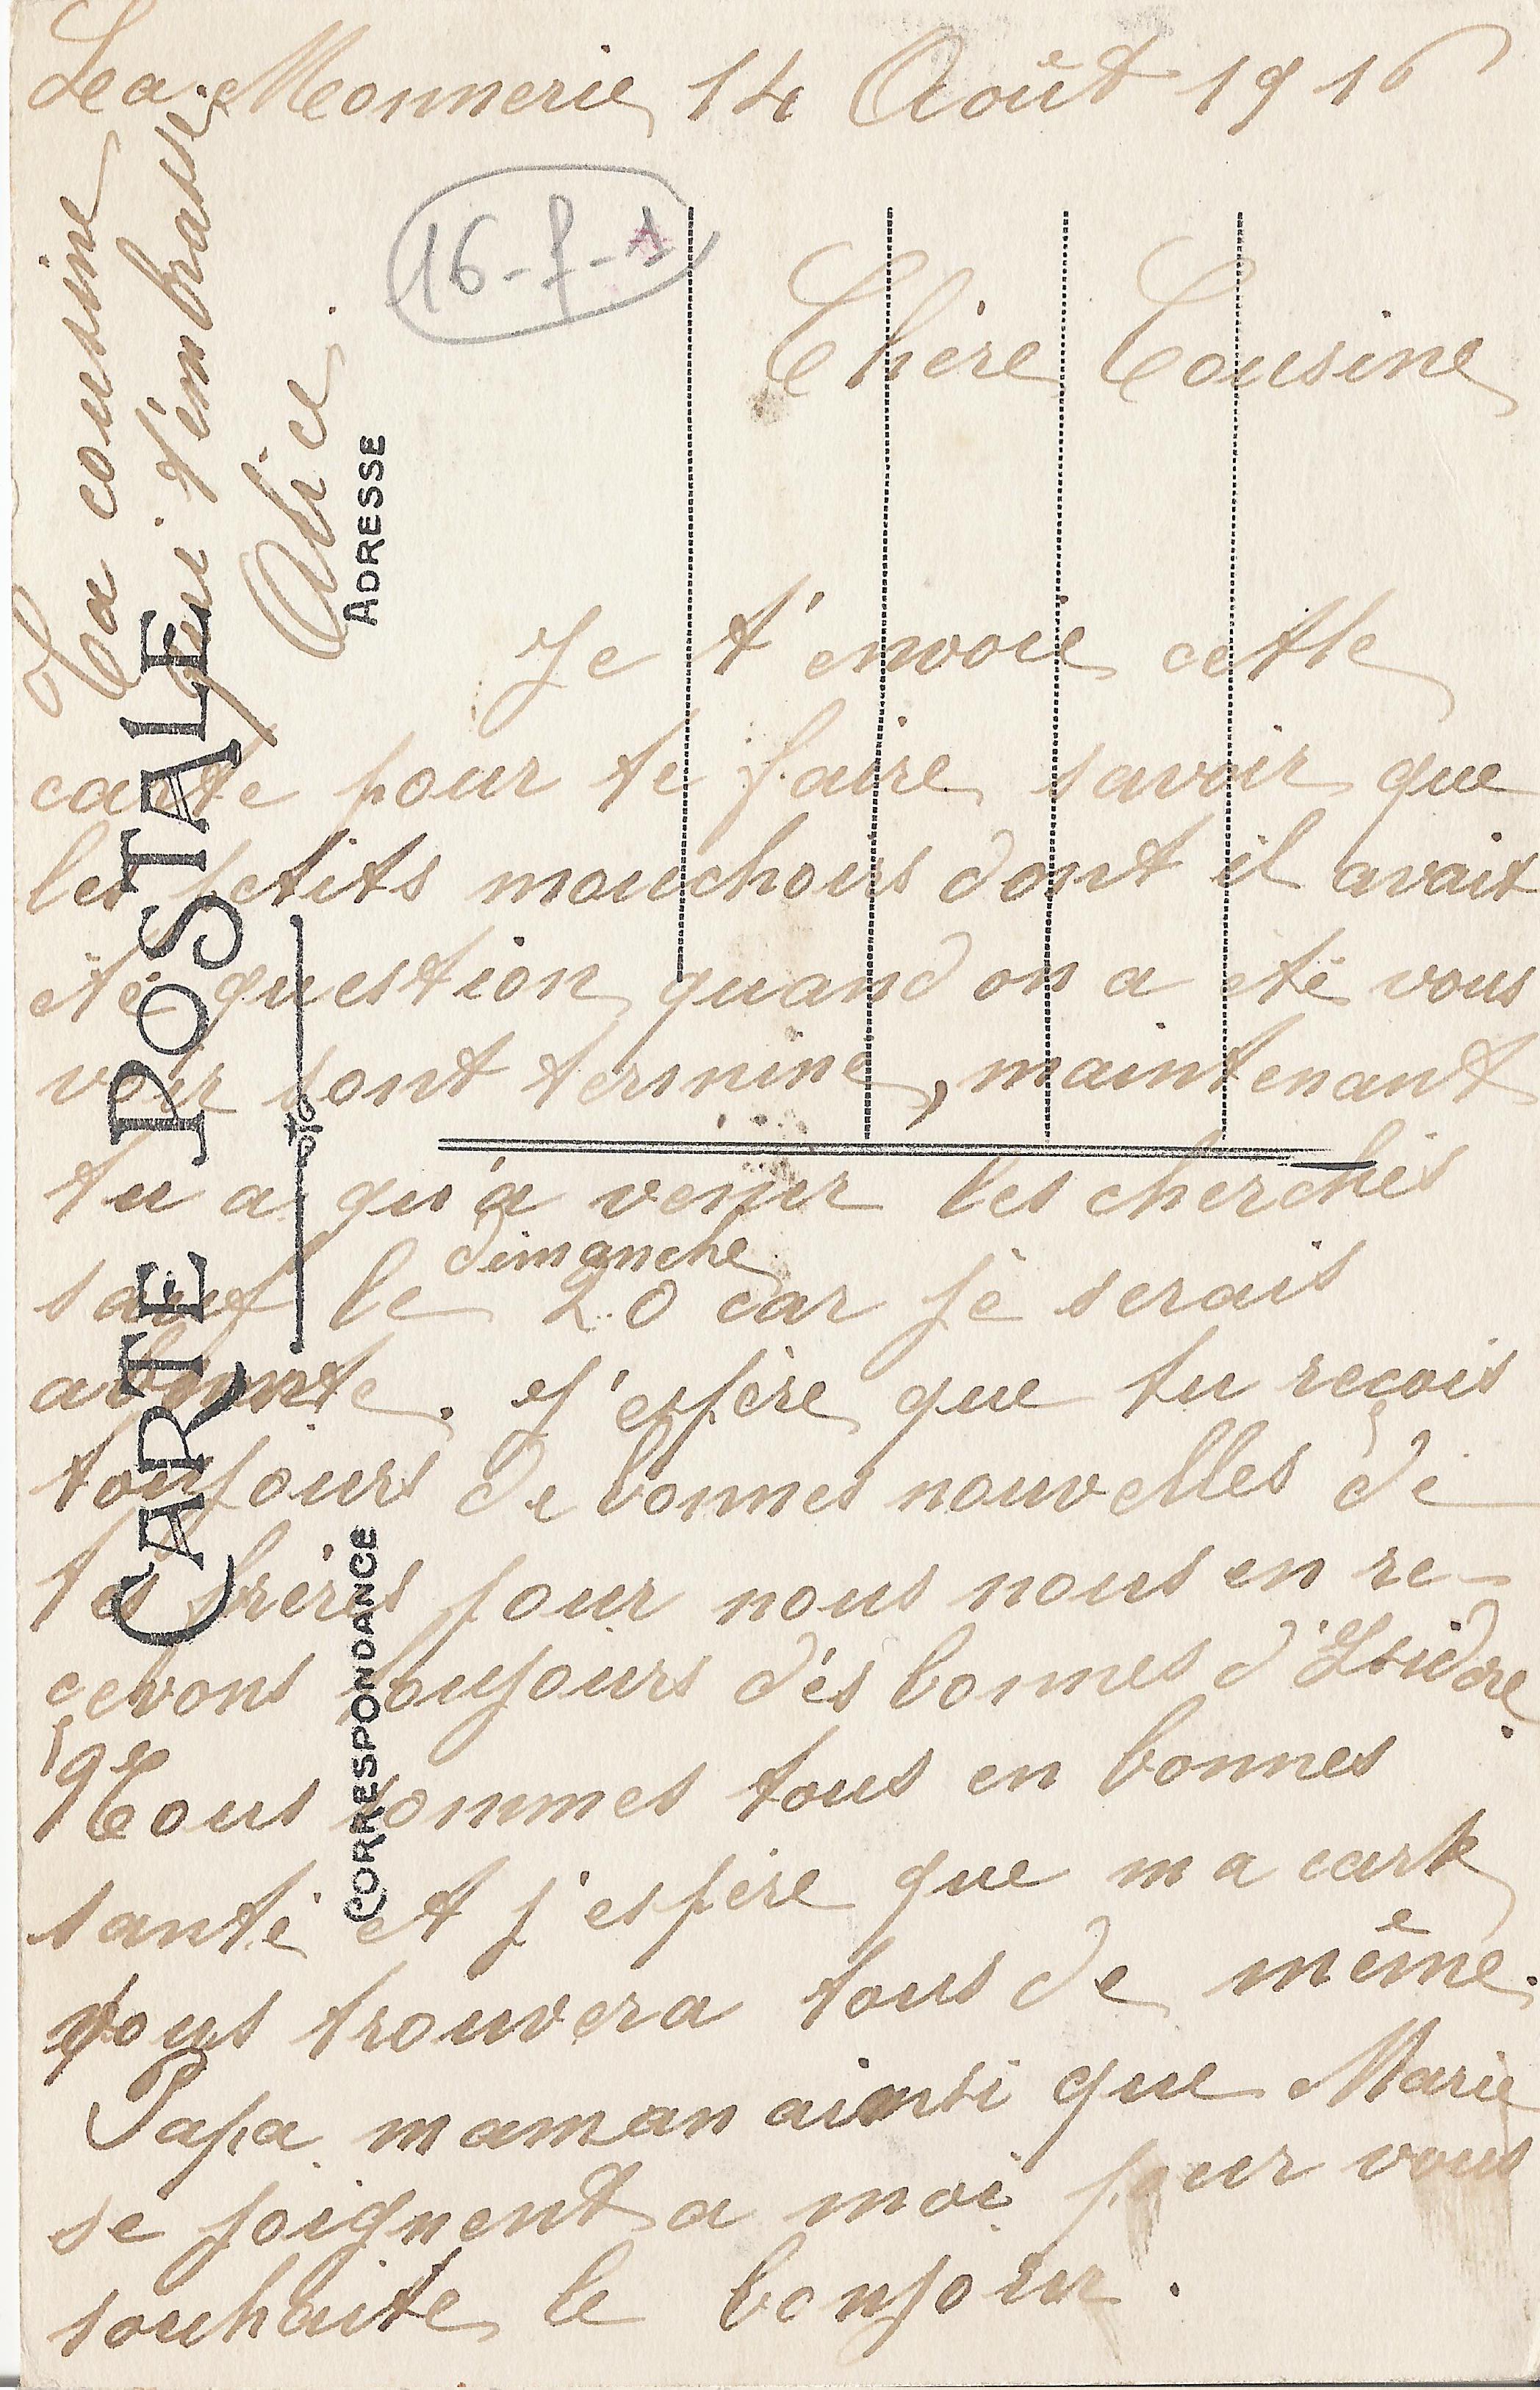 La Monnerie 14 Août 1916
16-7-1
Chère Cousine
Je t'envoie cette
carte pour te faire savoir que
les petits mouchoirs dont il avait
été question quand on a été vous
voir sont terminé, maintenant
tu a qu'à venir les cherchés
dimanche
sauf le 20 car je serais
absente. J'espère que tu reçois
toujours de bonnes nouvelles de
tes frères pour nous nous en re-
cevons toujours dés bonnes d'Isidore.
Nous sommes tous en bonnes
santé et j'espère que ma carte
vous trouvera tous de même.
Papa maman ainsi que Marie
se joignent a moi pour vous
souhaite le bonjour.
Ta cousine
qui t'embrasse
Alice
CARTE POSTALE
CORRESPONDANCE
ADRESSE